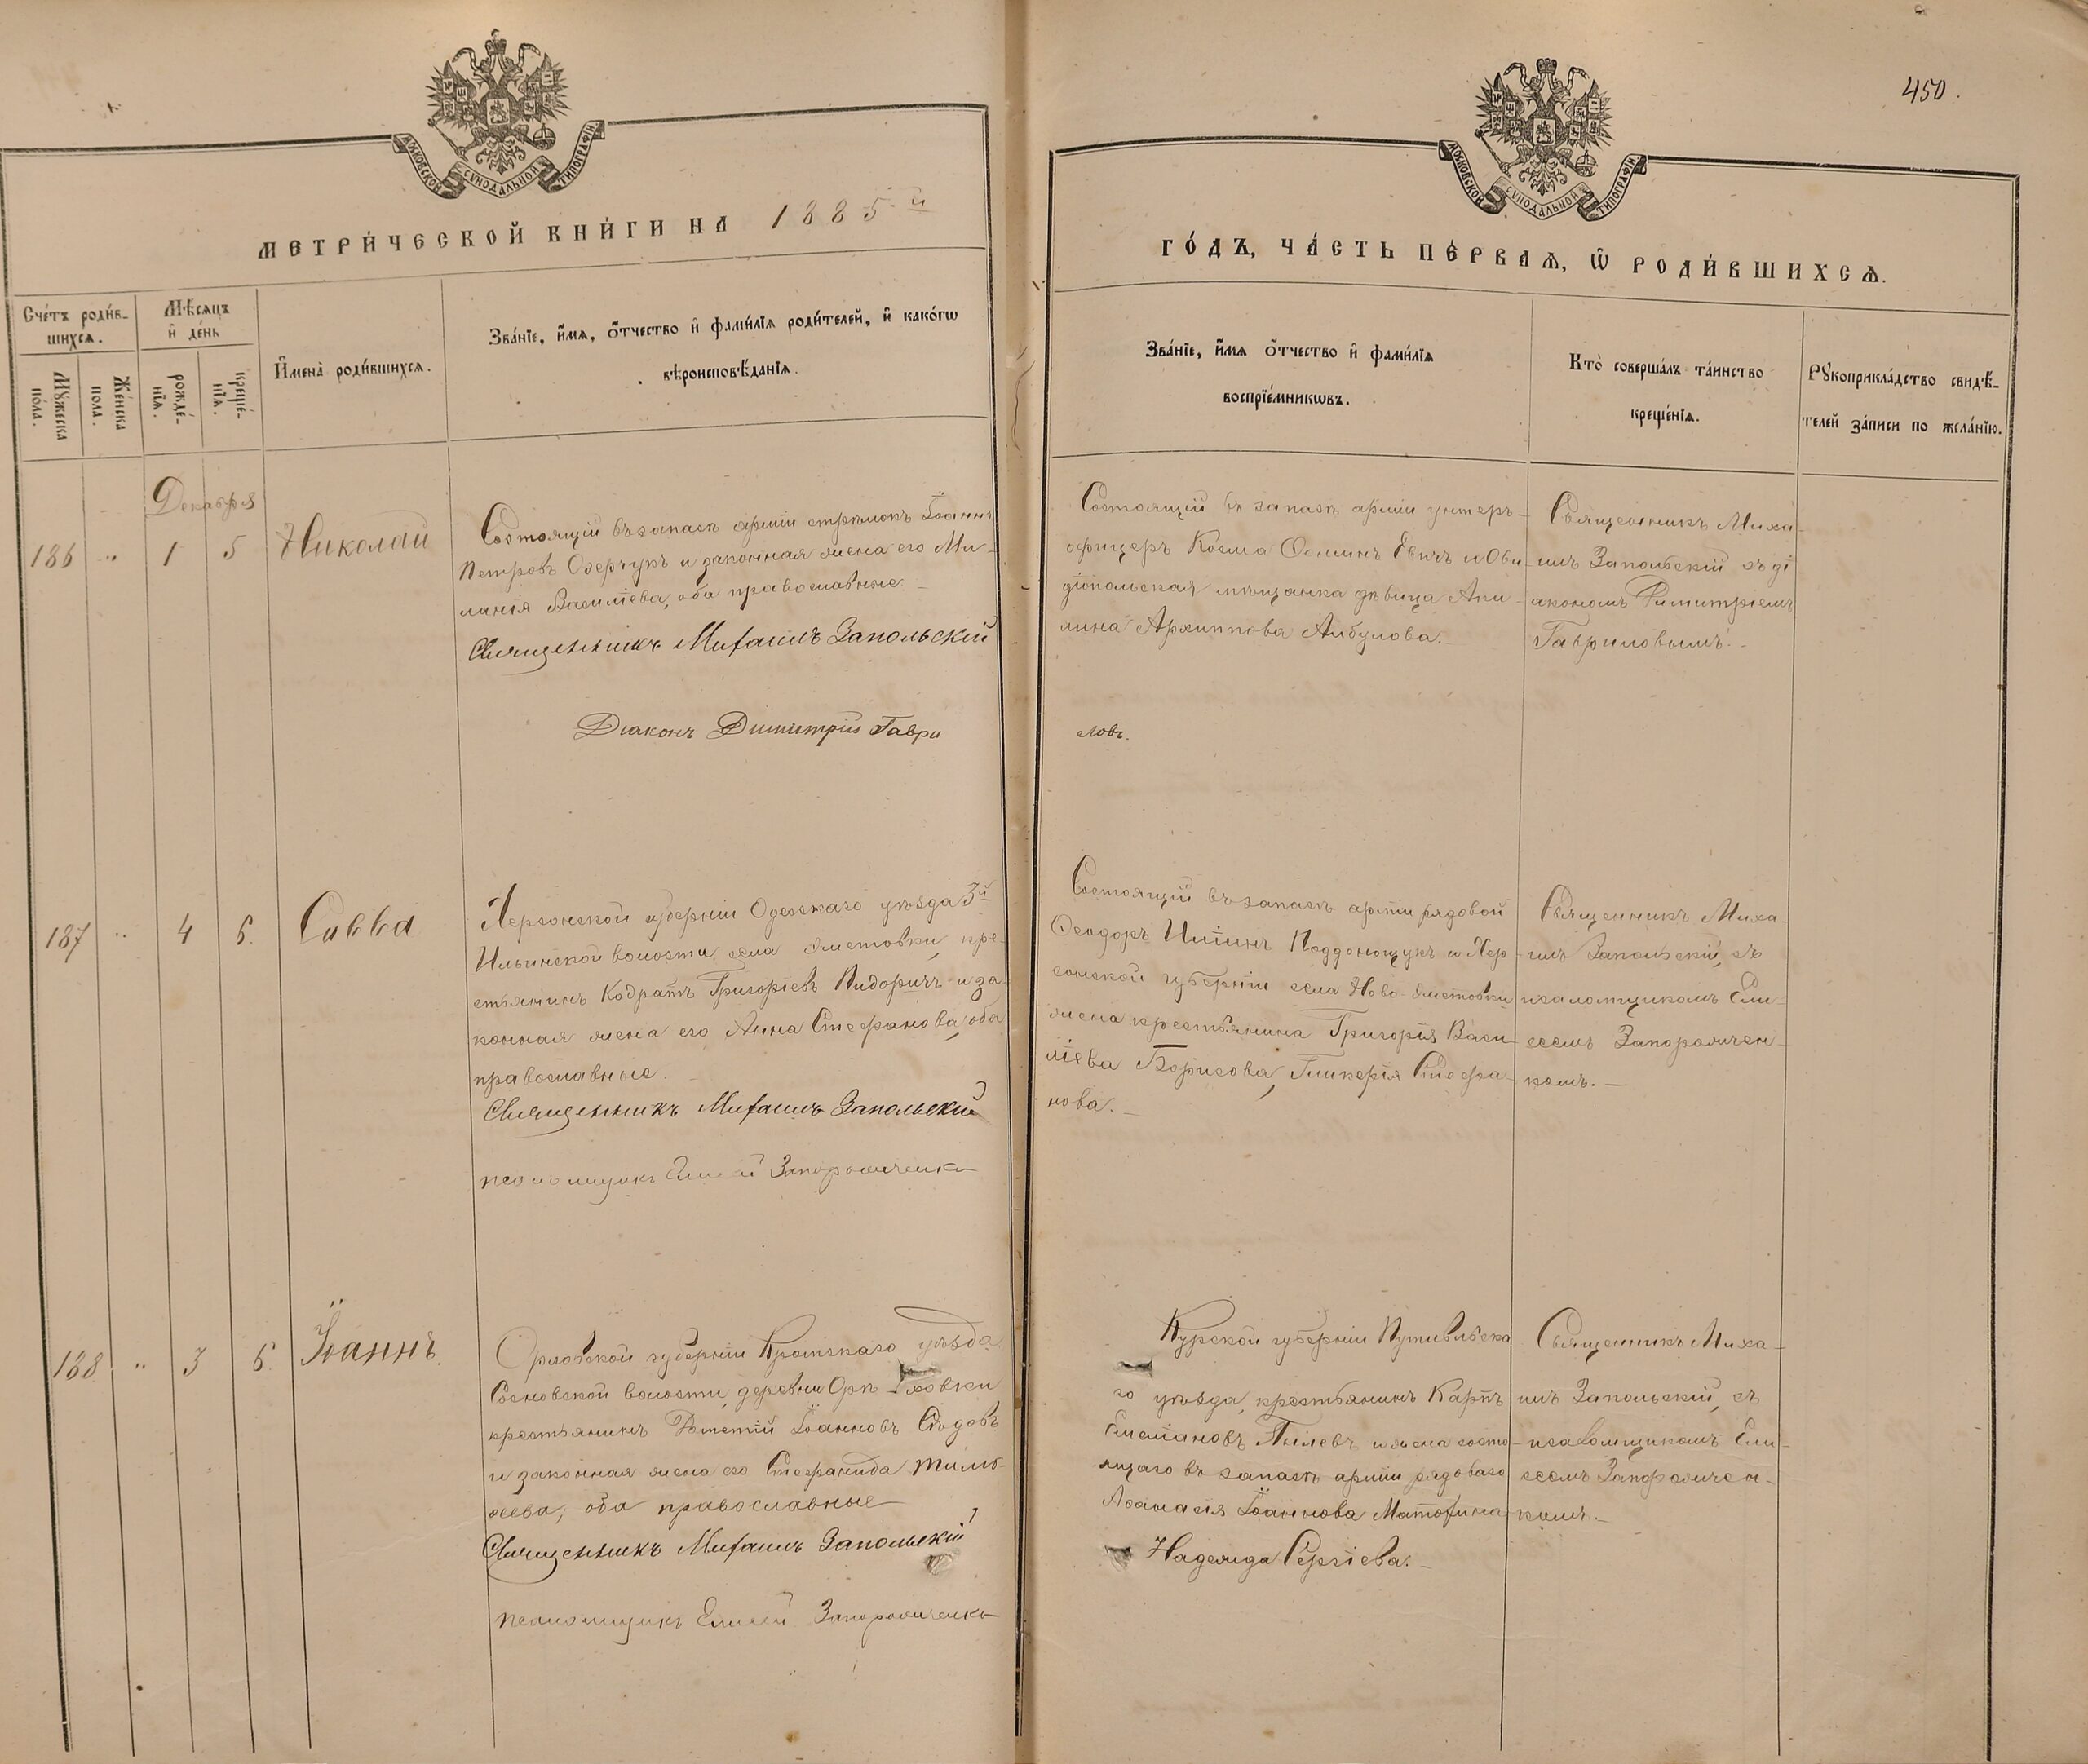 450.
МОСКОВСКОЙ СѴНОДАЛЬНОЙ ТИПОГРАФІИ
МОСКОВСКОЙ СѴНОДАЛЬНОЙ ТИПОГРАФІИ
МЕТРИ́ЧЕСКОЙ КНИ́ГИ НА 1885 й
ГО́ДЪ, ЧА́СТЬ ПЕ́РВАѦ, Ѡ҆ РОДИ́ВШИХСѦ.
Сче́тъ роди́в-
шихсѧ.
Мѣ́сѧцъ
и҆ де́нь
Мꙋ́жеска по́ла.
Же́нска пола.
рожде́-нїѧ.
креще́-нїѧ.
И҆мена̀ роди́вшихсѧ.
Зва́нїе, и҆́мѧ, ѻ҆́тчество и҆ фами́лїѧ роди́телей, и҆ како́гѡ
вѣроисповѣ́данїѧ.
Зва́нїе, и҆́мѧ ѻ҆́тчество и҆ фами́лїѧ
воспрїе́мникѡвъ.
Кто̀ соверша́лъ та́инство
креще́нїѧ.
Рꙋкоприкла́дство свидѣ́-
телей за́писи по жела́нїю.
Декабря
186 " 1 5 Николай
Состоящій въ запасѣ арміи стрѣлокъ Іоаннъ
Петровъ Озерчукъ и законная жена его Ме-
ланія Василіева, оба православные
Священникъ Михаилъ Запольскій
Діаконъ Димитрій Гаври
ловъ.
Состоящій въ запасѣ арміи унтеръ-
офицеръ Козма Осминъ и Ови-
діопольская мѣщанка дѣвица Аки-
лина Архиппова
Священникъ Миха-
илъ Запольскій съ ді
акономъ Димитріемъ
Гавриловымъ.
187 " 4 6. Савва
Херсонской губерніи Одесскаго уѣзда 3й
Ильинской волости села Яметовки, кре-
стьянинъ Кодратъ Григоріевъ Пидоричъ и за-
конная жена его Анна Стефанова, оба
православные.
Священникъ Михаилъ Запольскій
псаломщикъ Елисей Запорожченко
Состоящій въ запасѣ арміи рядовой
Ѳеодоръ Иліинъ Поддонощукъ и Хер-
сонской губерніи села Ново-Яметовки
жена крестьянина Григорія Васи-
ліева Борисова, Гликерія Стефа-
нова.
Священникъ Миха-
илъ Запольскій, съ
псаломщикомъ Ели-
сеемъ Запорожчен-
комъ.
188 " 3 6 Іоаннъ.
Орловской губерніи Кромскаго уѣзда
Сосновской волости, деревни
крестьянинъ Іоанновъ Сѣдовъ
и законная жена его Стефанида
оба православные
Священникъ Михаилъ Запольскій
псаломщикъ Елисей Запорожченко
Курской губерніи Путивльска
го уѣзда, крестьянинъ Карпъ
Емеліановъ и жена состо-
ящаго въ запасѣ арміи рядоваго
Аѳанасія Іоаннова Матохина
Надежда Сергіева.
Священникъ Миха-
илъ Запольскій, съ
псаломщикомъ Ели-
сеемъ Запорожчен-
комъ.